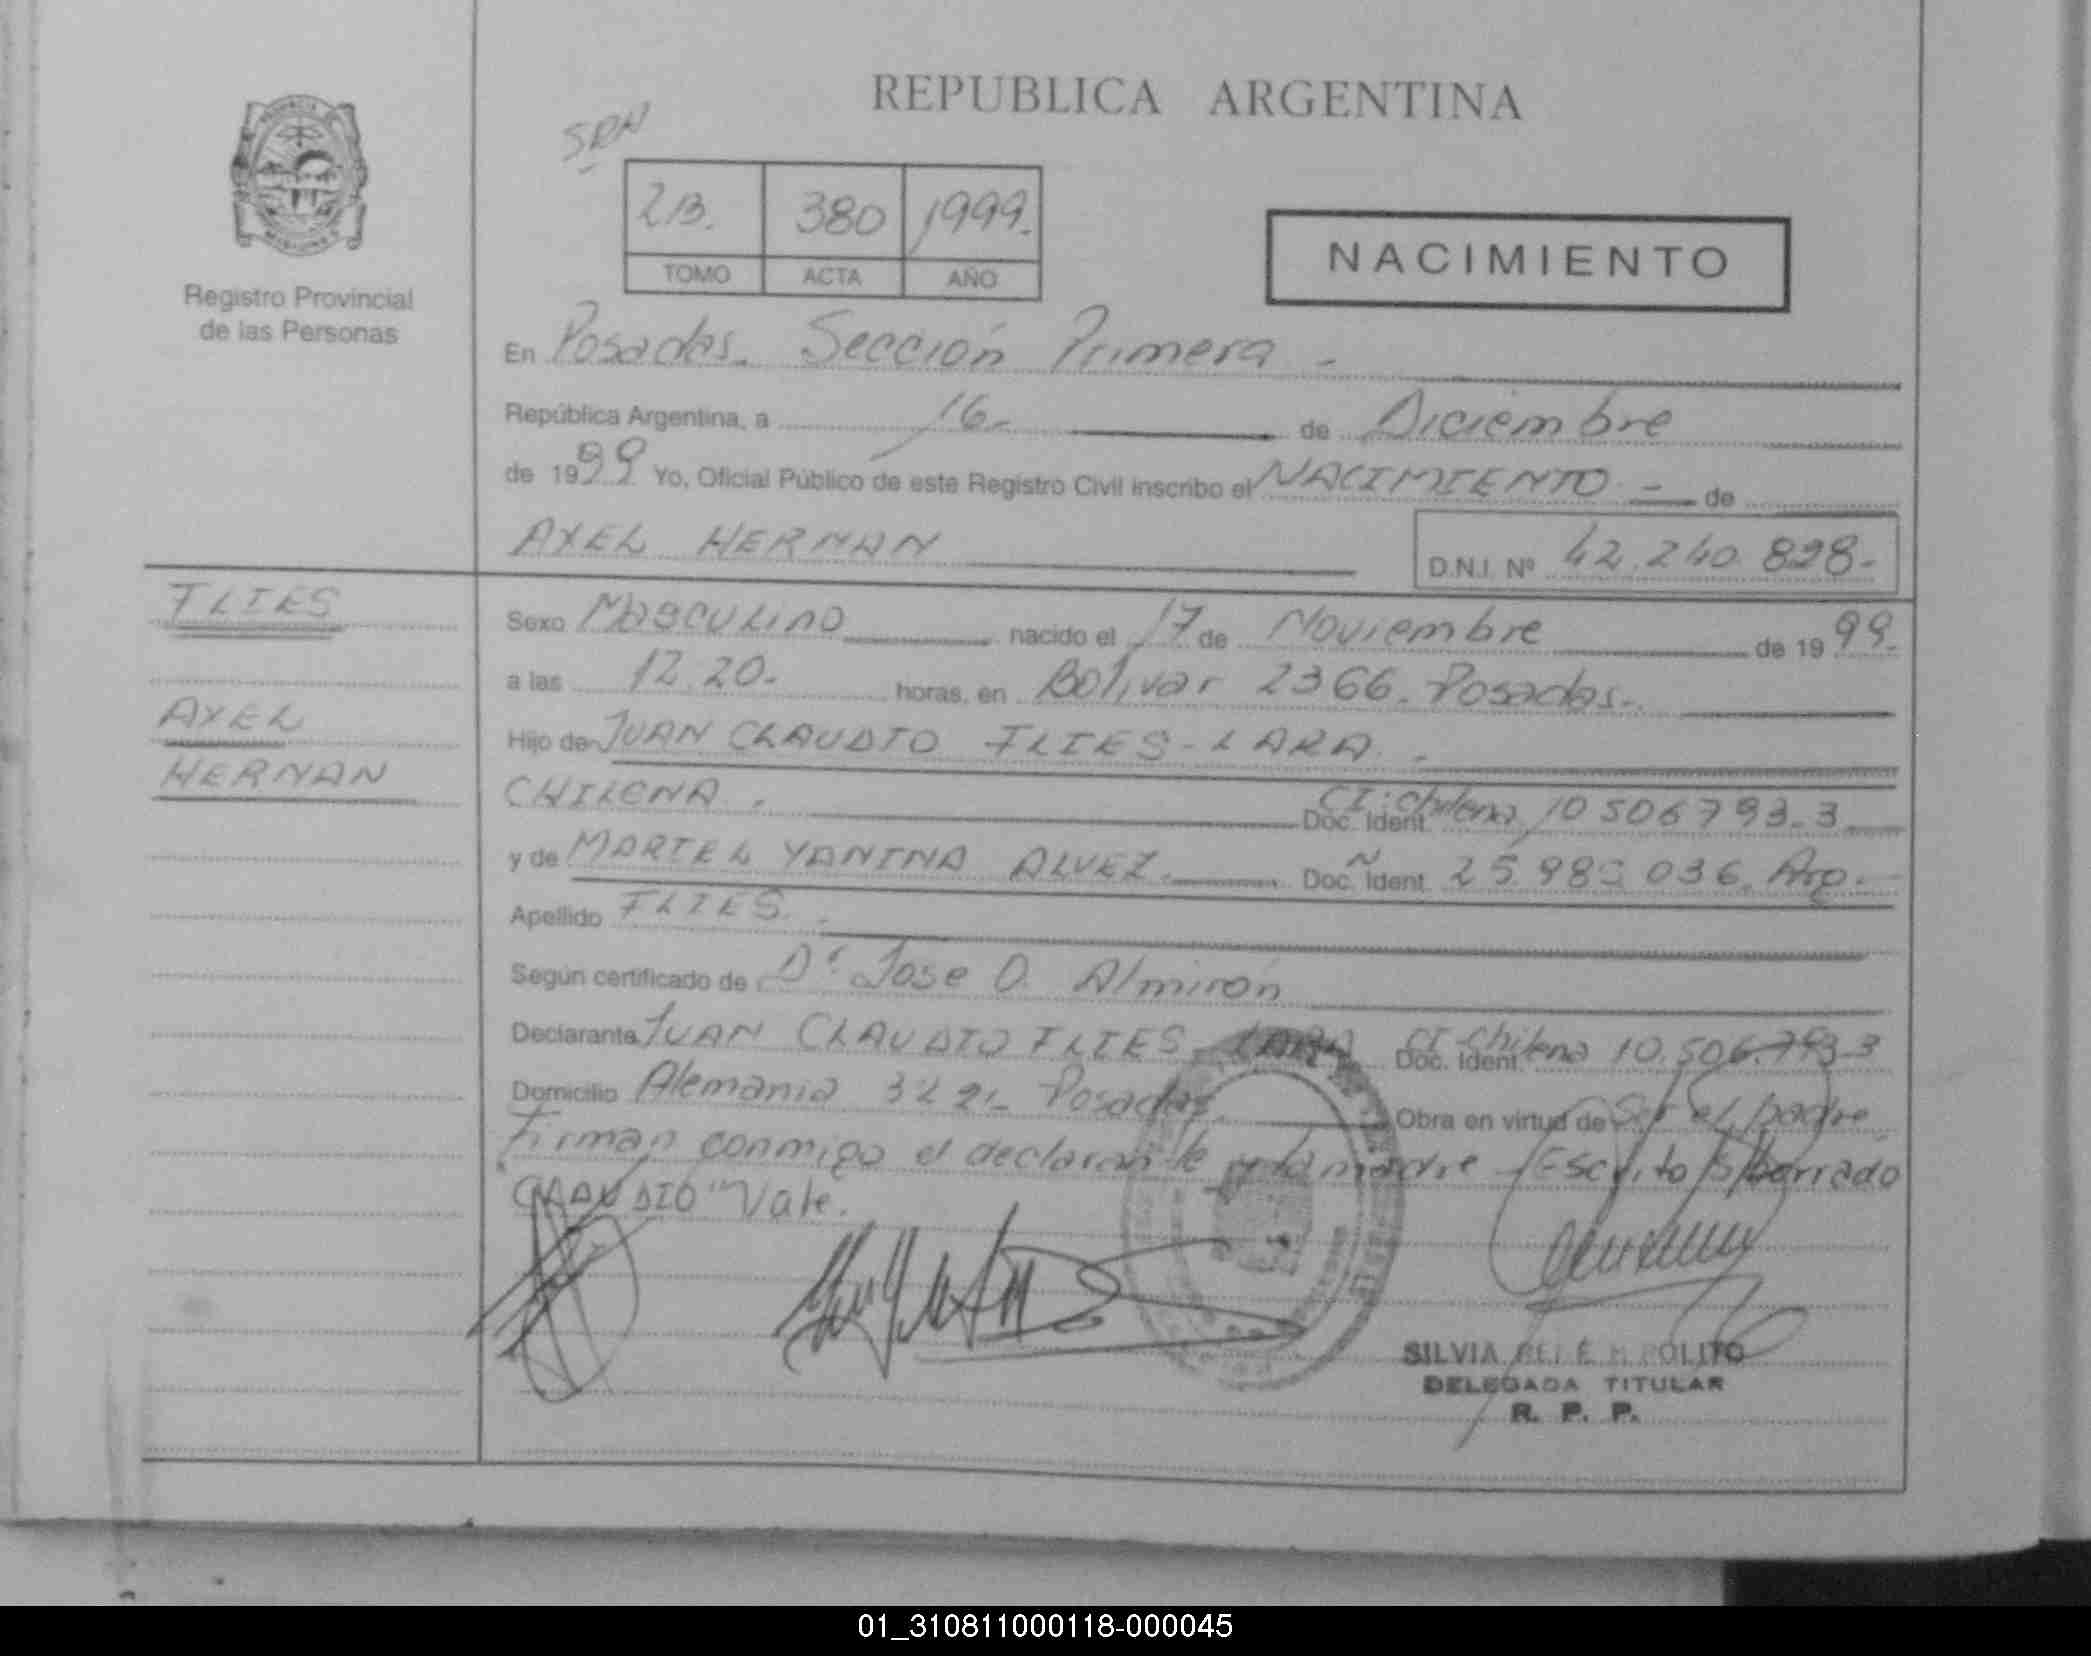 REPUBLICA ARGENTINA
PROVINCIA
MISIONES
Registro Provincial
de las Personas
2B. 380 1999.
TOMO ACTA AÑO
NACIMIENTO
En Posadas. Sección Primera -
República Argentina, a 16- de Diciembre
de 1999 Yo, Oficial Público de este Registro Civil inscribo el NACIMIENTO - de
AXEL HERNAN
D.N.I. Nº 42.240.828-
FLIES
AXEL
HERNAN
Sexo Masculino nacido el 17 de Noviembre de 1999.
a las 12.20. horas, en Bolívar 2366. Posadas.-
Hijo de JUAN CLAUDIO FLIES-LARA.
CHILENA. Doc. Ident. CI: chilena 10506793-3
y de MARIEL YANINA ALVEZ. Doc. Ident. 036. Arg.-
Apellido FLIES.
Según certificado de Dr. Jose O. Almirón
Declarante JUAN CLAUDIO FLIES-LARA Doc. Ident. CI chilena 10.506.793-3
Domicilio Alemania Posadas. Obra en virtud de Ser el padre
Firman conmigo el declarante y la madre - Escrito s/borrado
"CLAUDIO" Vale.
SILVIA HIPOLITO
DELEGADA TITULAR
R. P. P.
01_310811000118-000045